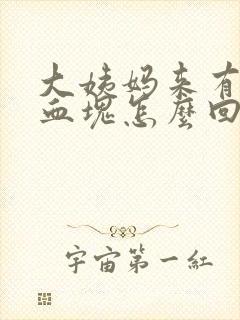 大姨妈来有
血塊怎麼回
宇宙第一紅